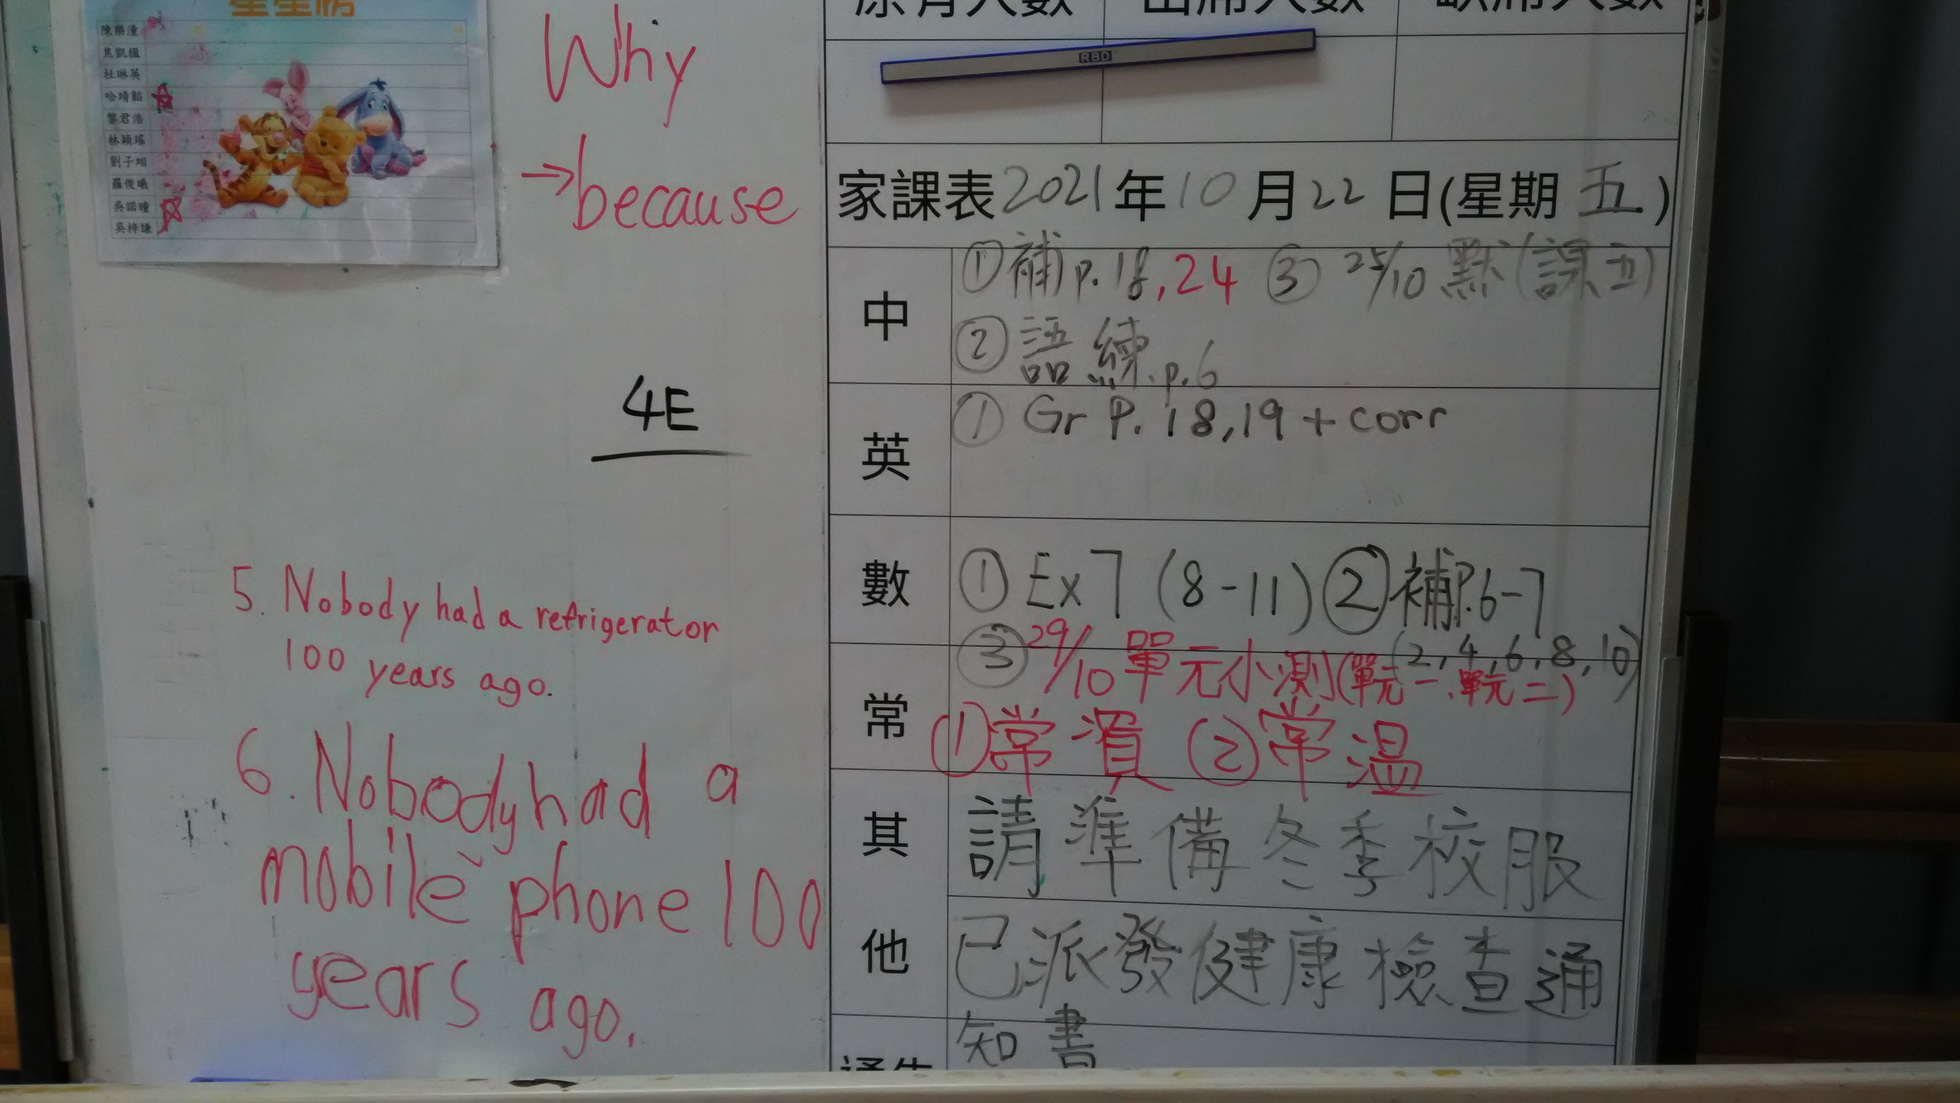 星星榜
陳樂潼
焦凱楹
杜琳英
哈靖韜
黎君浩
林穎瑤
劉子翊
羅俊曦
吳諾曈
吳梓謙
Why
→because
4E
5. Nobody had a refrigerator
100 years ago.
6. Nobody had a
mobile phone 100
years ago.
原有人數 出席人數 缺席人數
RBD
家課表2021年10月22日(星期五)
中
①補p.18,24 ③ 25/10 默(課五)
②語練.p.6
英
① Gr P.18,19 + corr
數
① Ex7 (8-11) ②補P.6-7
(2,4,6,8,10)
③ 29/10 單元小測(單元一、單元二)
常
①常 ②常溫
其他
請準備冬季校服
已派發健康檢查通
知書
通告